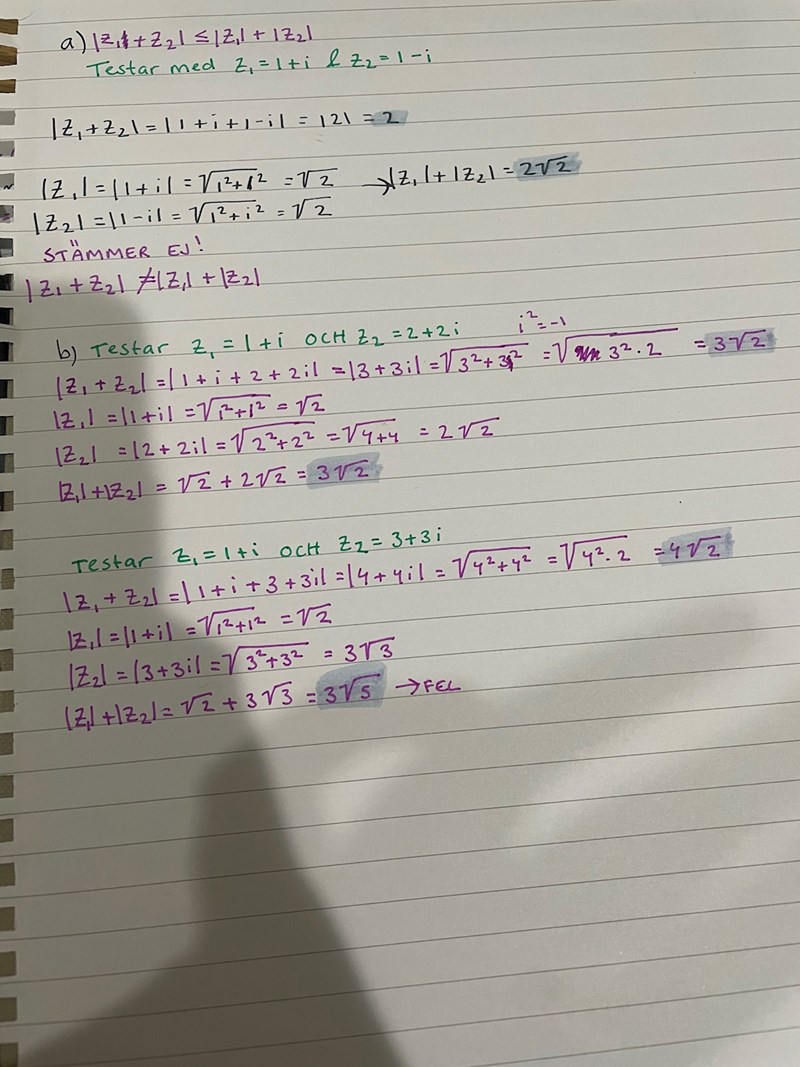 a) |z₁+z₂| ≤ |z₁| + |z₂|
Testar med z₁ = 1+i & z₂ = 1-i
|z₁+z₂| = |1+i+1-i| = |2| = 2
|z₁| = |1+i| = √1²+1² = √2 → |z₁|+|z₂| = 2√2
|z₂| = |1-i| = √1²+i² = √2
STÄMMER EJ!
|z₁+z₂| ≠ |z₁| + |z₂|
b) Testar z₁ = 1+i OCH z₂ = 2+2i i² = -1
|z₁+z₂| = |1+i+2+2i| = |3+3i| = √3²+3² = √3²·2 = 3√2
|z₁| = |1+i| = √1²+1² = √2
|z₂| = |2+2i| = √2²+2² = √4+4 = 2√2
|z₁|+|z₂| = √2 + 2√2 = 3√2
Testar z₁ = 1+i OCH z₂ = 3+3i
|z₁+z₂| = |1+i+3+3i| = |4+4i| = √4²+4² = √4²·2 = 4√2
|z₁| = |1+i| = √1²+1² = √2
|z₂| = |3+3i| = √3²+3² = 3√3
|z₁|+|z₂| = √2 + 3√3 = 3√5 → FEL